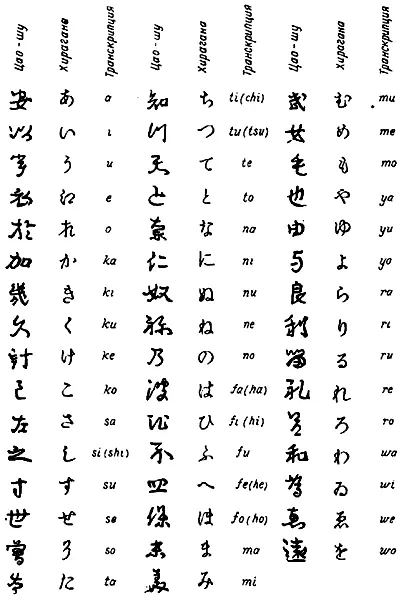 Цао-шу Хирагана Транскрипция Цао-шу Хирагана Транскрипция Цао-шу Хирагана Транскрипция
安 あ a 知 ち ti(chi) 武 む mu
以 い i 川 つ tu(tsu) 女 め me
宇 う u 天 て te 毛 も mo
衣 e と to 也 や ya
於 o 奈 な na 由 ゆ yu
加 か ka 仁 に ni 与 よ yo
幾 き ki 奴 ぬ nu 良 ら ra
久 く ku 祢 ね ne 利 り ri
計 け ke 乃 の no 留 る ru
己 こ ko 波 は fa(ha) 礼 れ re
左 さ sa ひ fi(hi) ろ ro
之 し si(shi) 不 ふ fu 和 わ wa
寸 す su へ fe(he) 為 ゐ wi
世 せ se 保 ほ fo(ho) 恵 ゑ we
曽 so 末 ま ma 遠 を wo
た ta 美 み mi